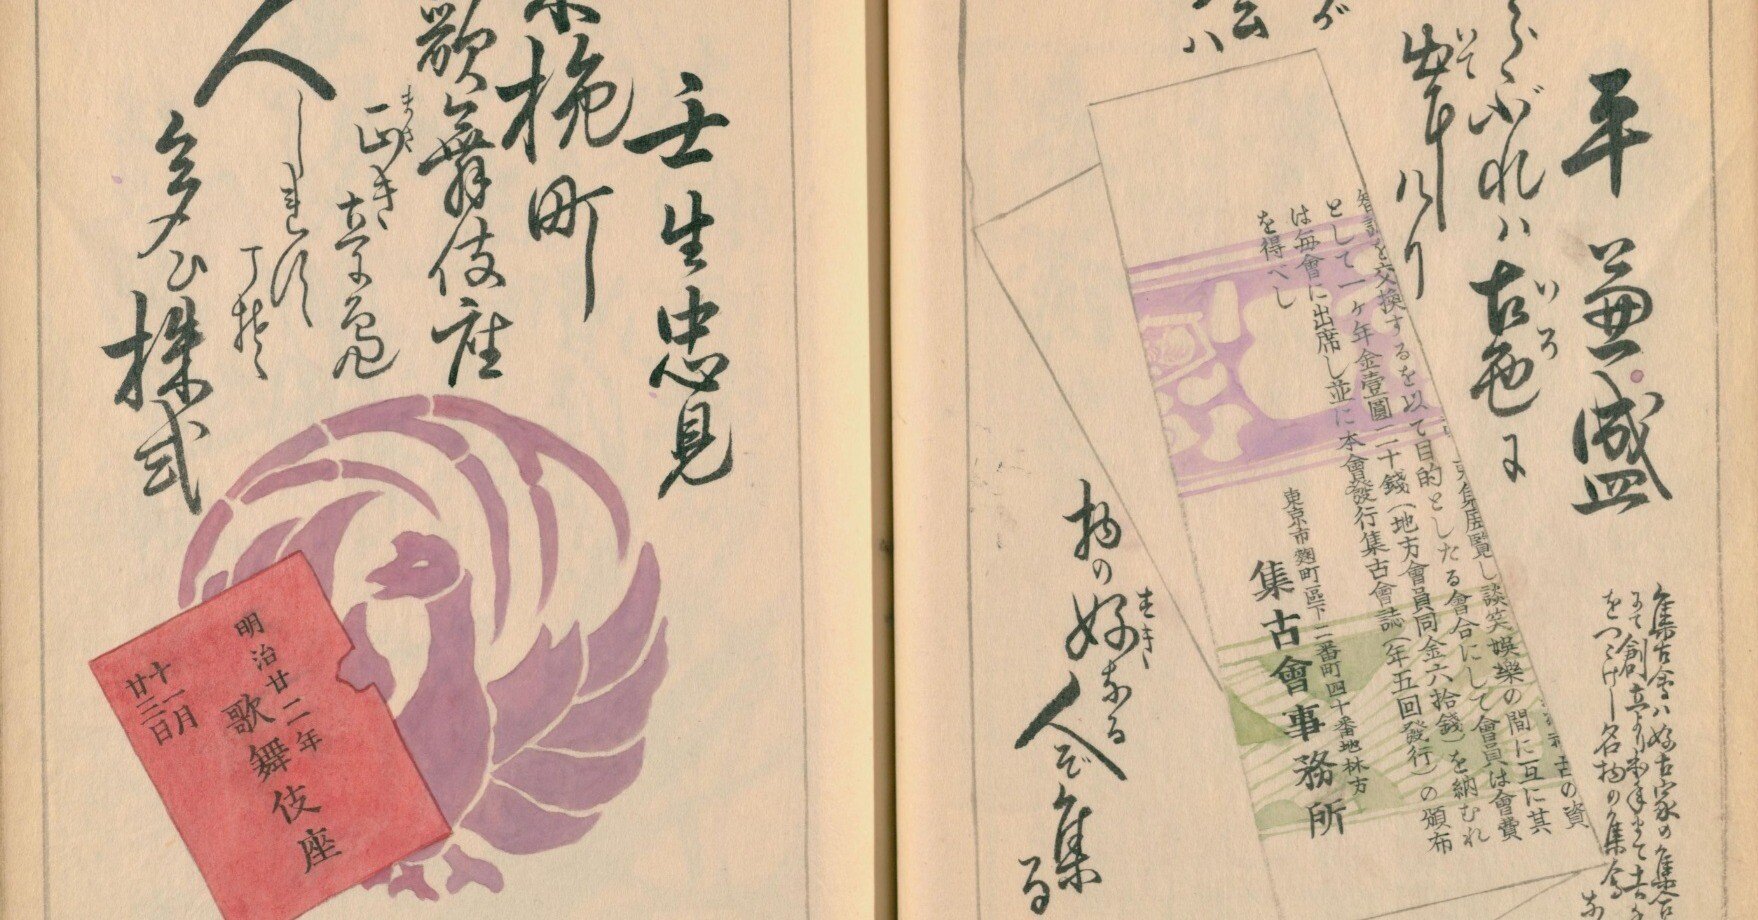 平兼盛
らぶれハ古色に
出にけり
会ハ
物の好なる
人ぞ集る
集古會ハ好古家の集合
にて創立より
をつゞけし名物の集會
古の資
集展覧し談笑娯樂の間に互に其
智識を交換するを以て目的としたる會合にして會員は會費
として一ヶ年金壹圓二十錢(地方會員同金六拾錢)を納むれ
は毎會に出席し並に本會發行集古會誌(年五回發行)の頒布
を得へし
東京市麹町區下二番町四十番地林方
集古會事務所
壬生忠見
挽町
歌舞伎座
人しれず
多ひ株式
明治廿二年
十一月
廿三日
歌舞伎座